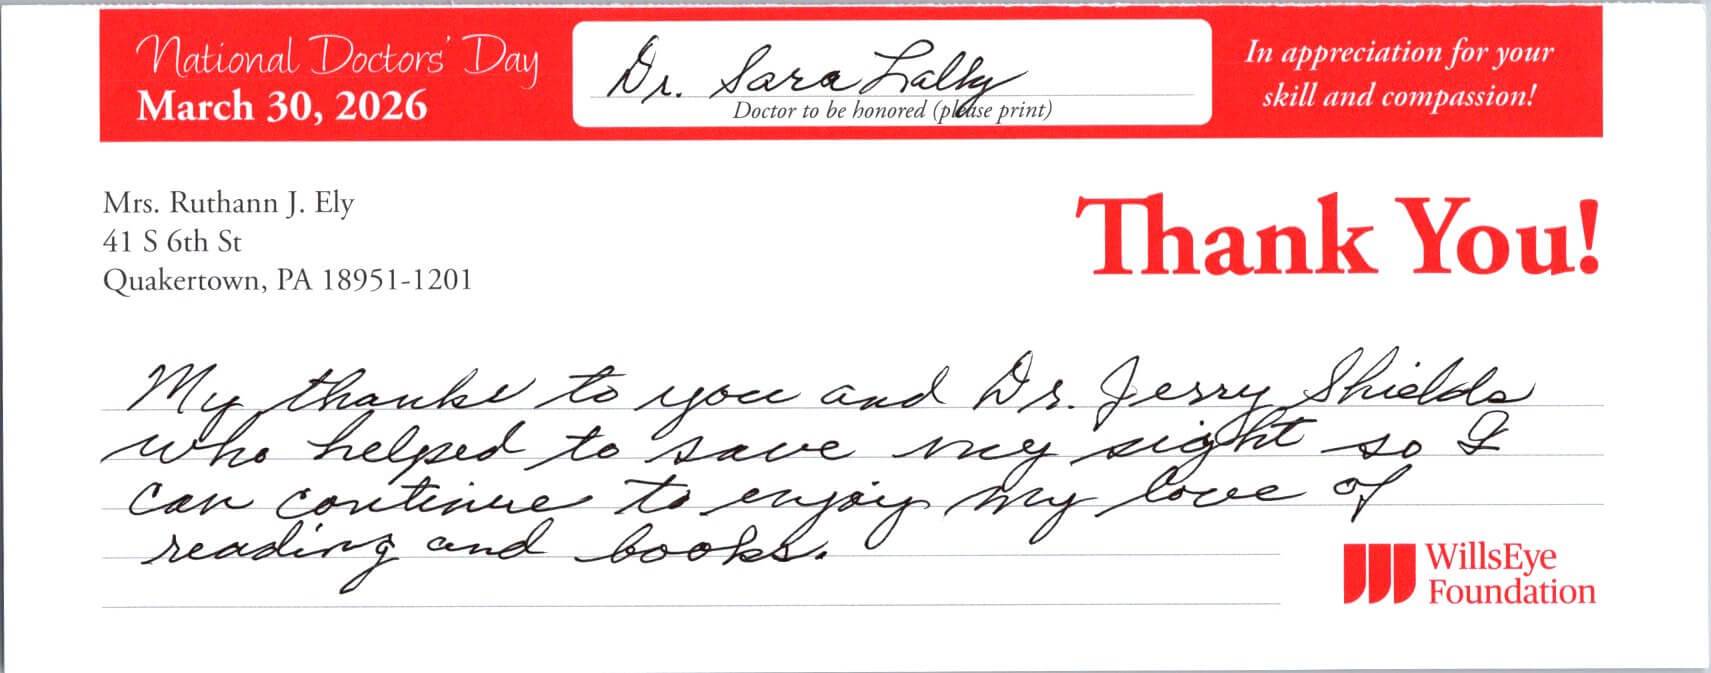 National Doctors' Day
March 30, 2026
Dr. Sara Lally
Doctor to be honored (please print)
In appreciation for your
skill and compassion!
Mrs. Ruthann J. Ely
41 S 6th St
Quakertown, PA 18951-1201
Thank You!
My thanks to you and Dr. Jerry Shields
who helped to save my sight so I
can continue to enjoy my love of
reading and books.
WillsEye
Foundation